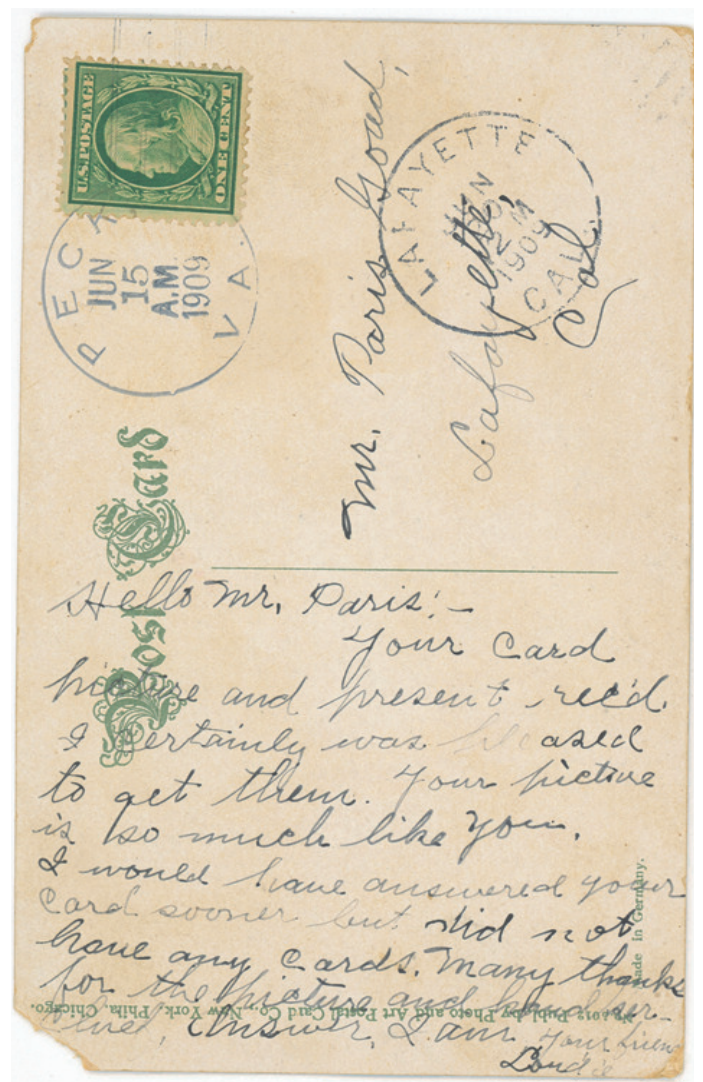 U.S. POSTAGE
ONE CENT
JUN
15
A.M.
1909
VA.
LAFAYETTE
JUN
2
M
1909
CAL.
Mr. Paris Goud,
Lafayette,
Cal.
Post Card
Hello Mr. Paris:-
Your Card
picture and present rec'd.
I certainly was pleased
to get them. Your picture
is so much like you.
I would have answered your
Card sooner but did not
have any Cards. Many thanks
for the picture and
Answer, I am your friend
Made in Germany.
Publ. by Photo and Art Postal Card Co., New York, Phila, Chicago.